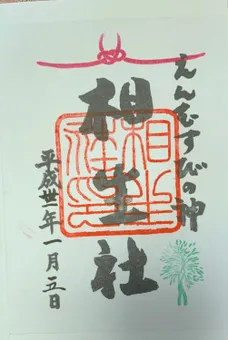 えんむすびの神
相生社
平成丗一年一月五日